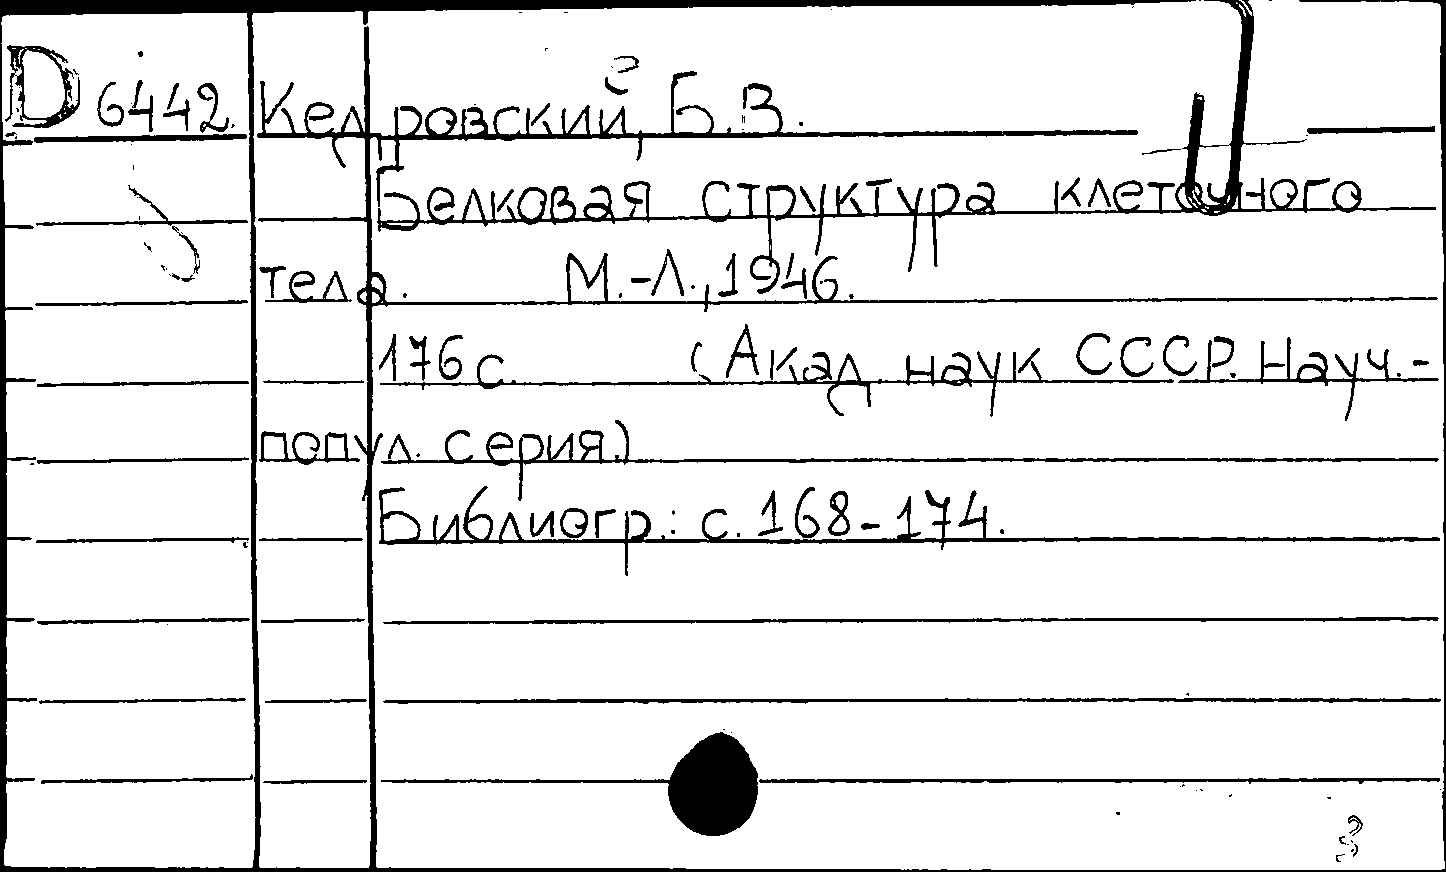 D 6442. Кедровский, Б.В.
Белковая структура клеточного
тела. М.-Л., 1946.
176 с. (Акад наук СССР. Науч.-
попул. серия.)
Библиогр.: с. 168-174.
3